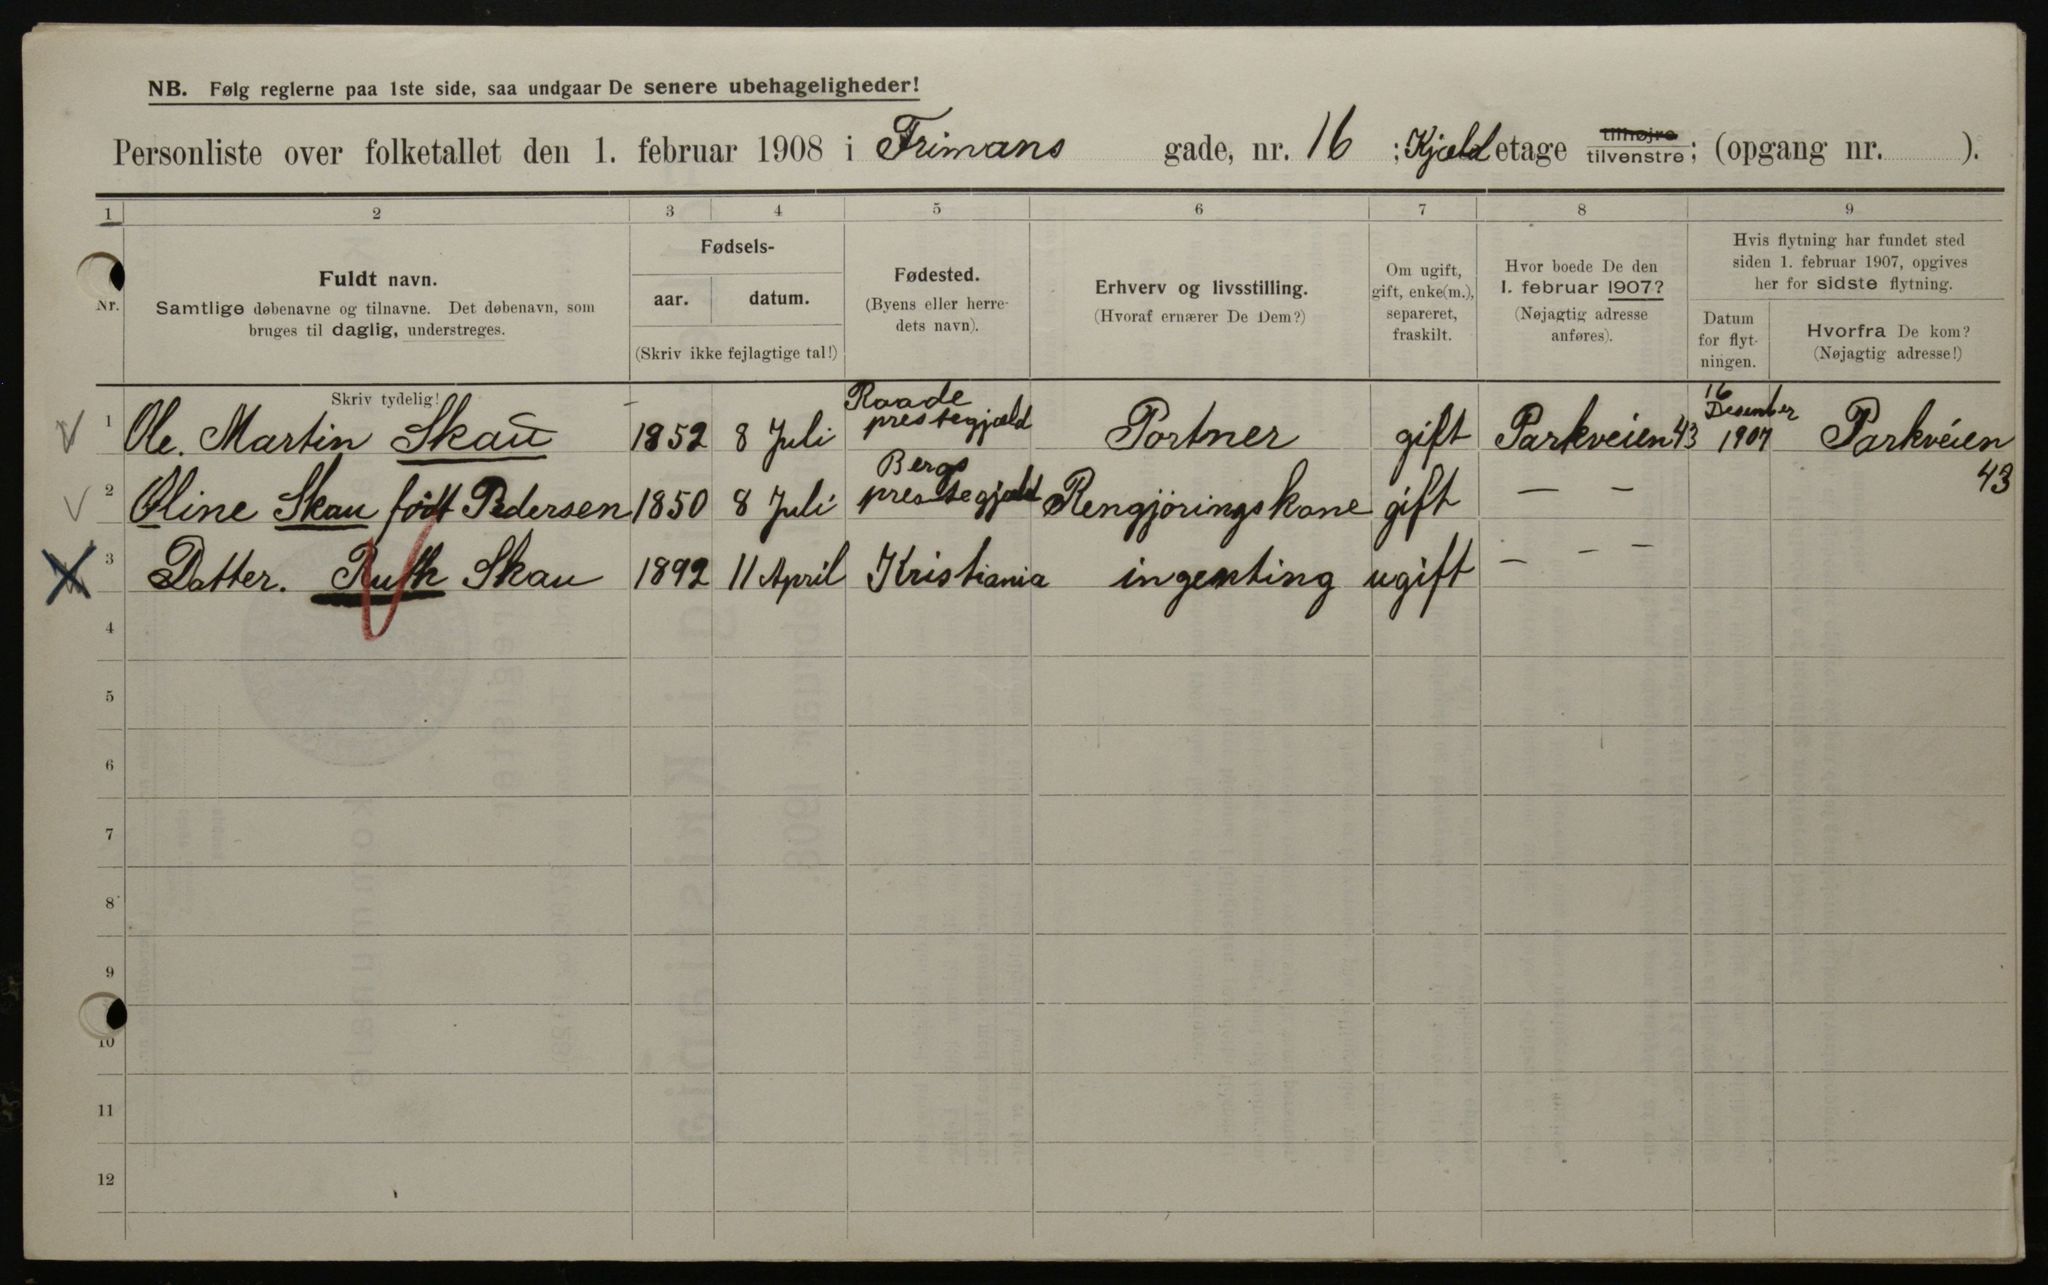 NB. Følg reglerne paa 1ste side, saa undgaar De senere ubehageligheder!
Personliste over folketallet den 1. februar 1908 i Frimans gade, nr. 16 ; Kjæld etage tilhøjre tilvenstre; (opgang nr. ).
1 2 3 4 5 6 7 8 9
Nr.
Fuldt navn.
Samtlige døbenavne og tilnavne. Det døbenavn, som
bruges til daglig, understreges.
Skriv tydelig!
Fødsels-
aar. datum.
(Skriv ikke fejlagtige tal!)
Fødested.
(Byens eller herre-
dets navn).
Erhverv og livsstilling.
(Hvoraf ernærer De Dem?)
Om ugift,
gift, enke(m.),
separeret,
fraskilt.
Hvor boede De den
1. februar 1907?
(Nøjagtig adresse
anføres).
Hvis flytning har fundet sted
siden 1. februar 1907, opgives
her for sidste flytning.
Datum
for flyt-
ningen.
Hvorfra De kom?
(Nøjagtig adresse!)
1 Ole. Martin Skau 1852 8 Juli Raade prestegjæld Portner gift Parkveien 43 16 Desember 1907 Parkveien 43
2 Oline Skau født Pedersen 1850 8 Juli Bergs prestegjæld Rengjøringskone gift — —
3 Datter. Ruth Skau 1892 11 April Kristiania ingenting ugift — — —
4
5
6
7
8
9
10
11
12